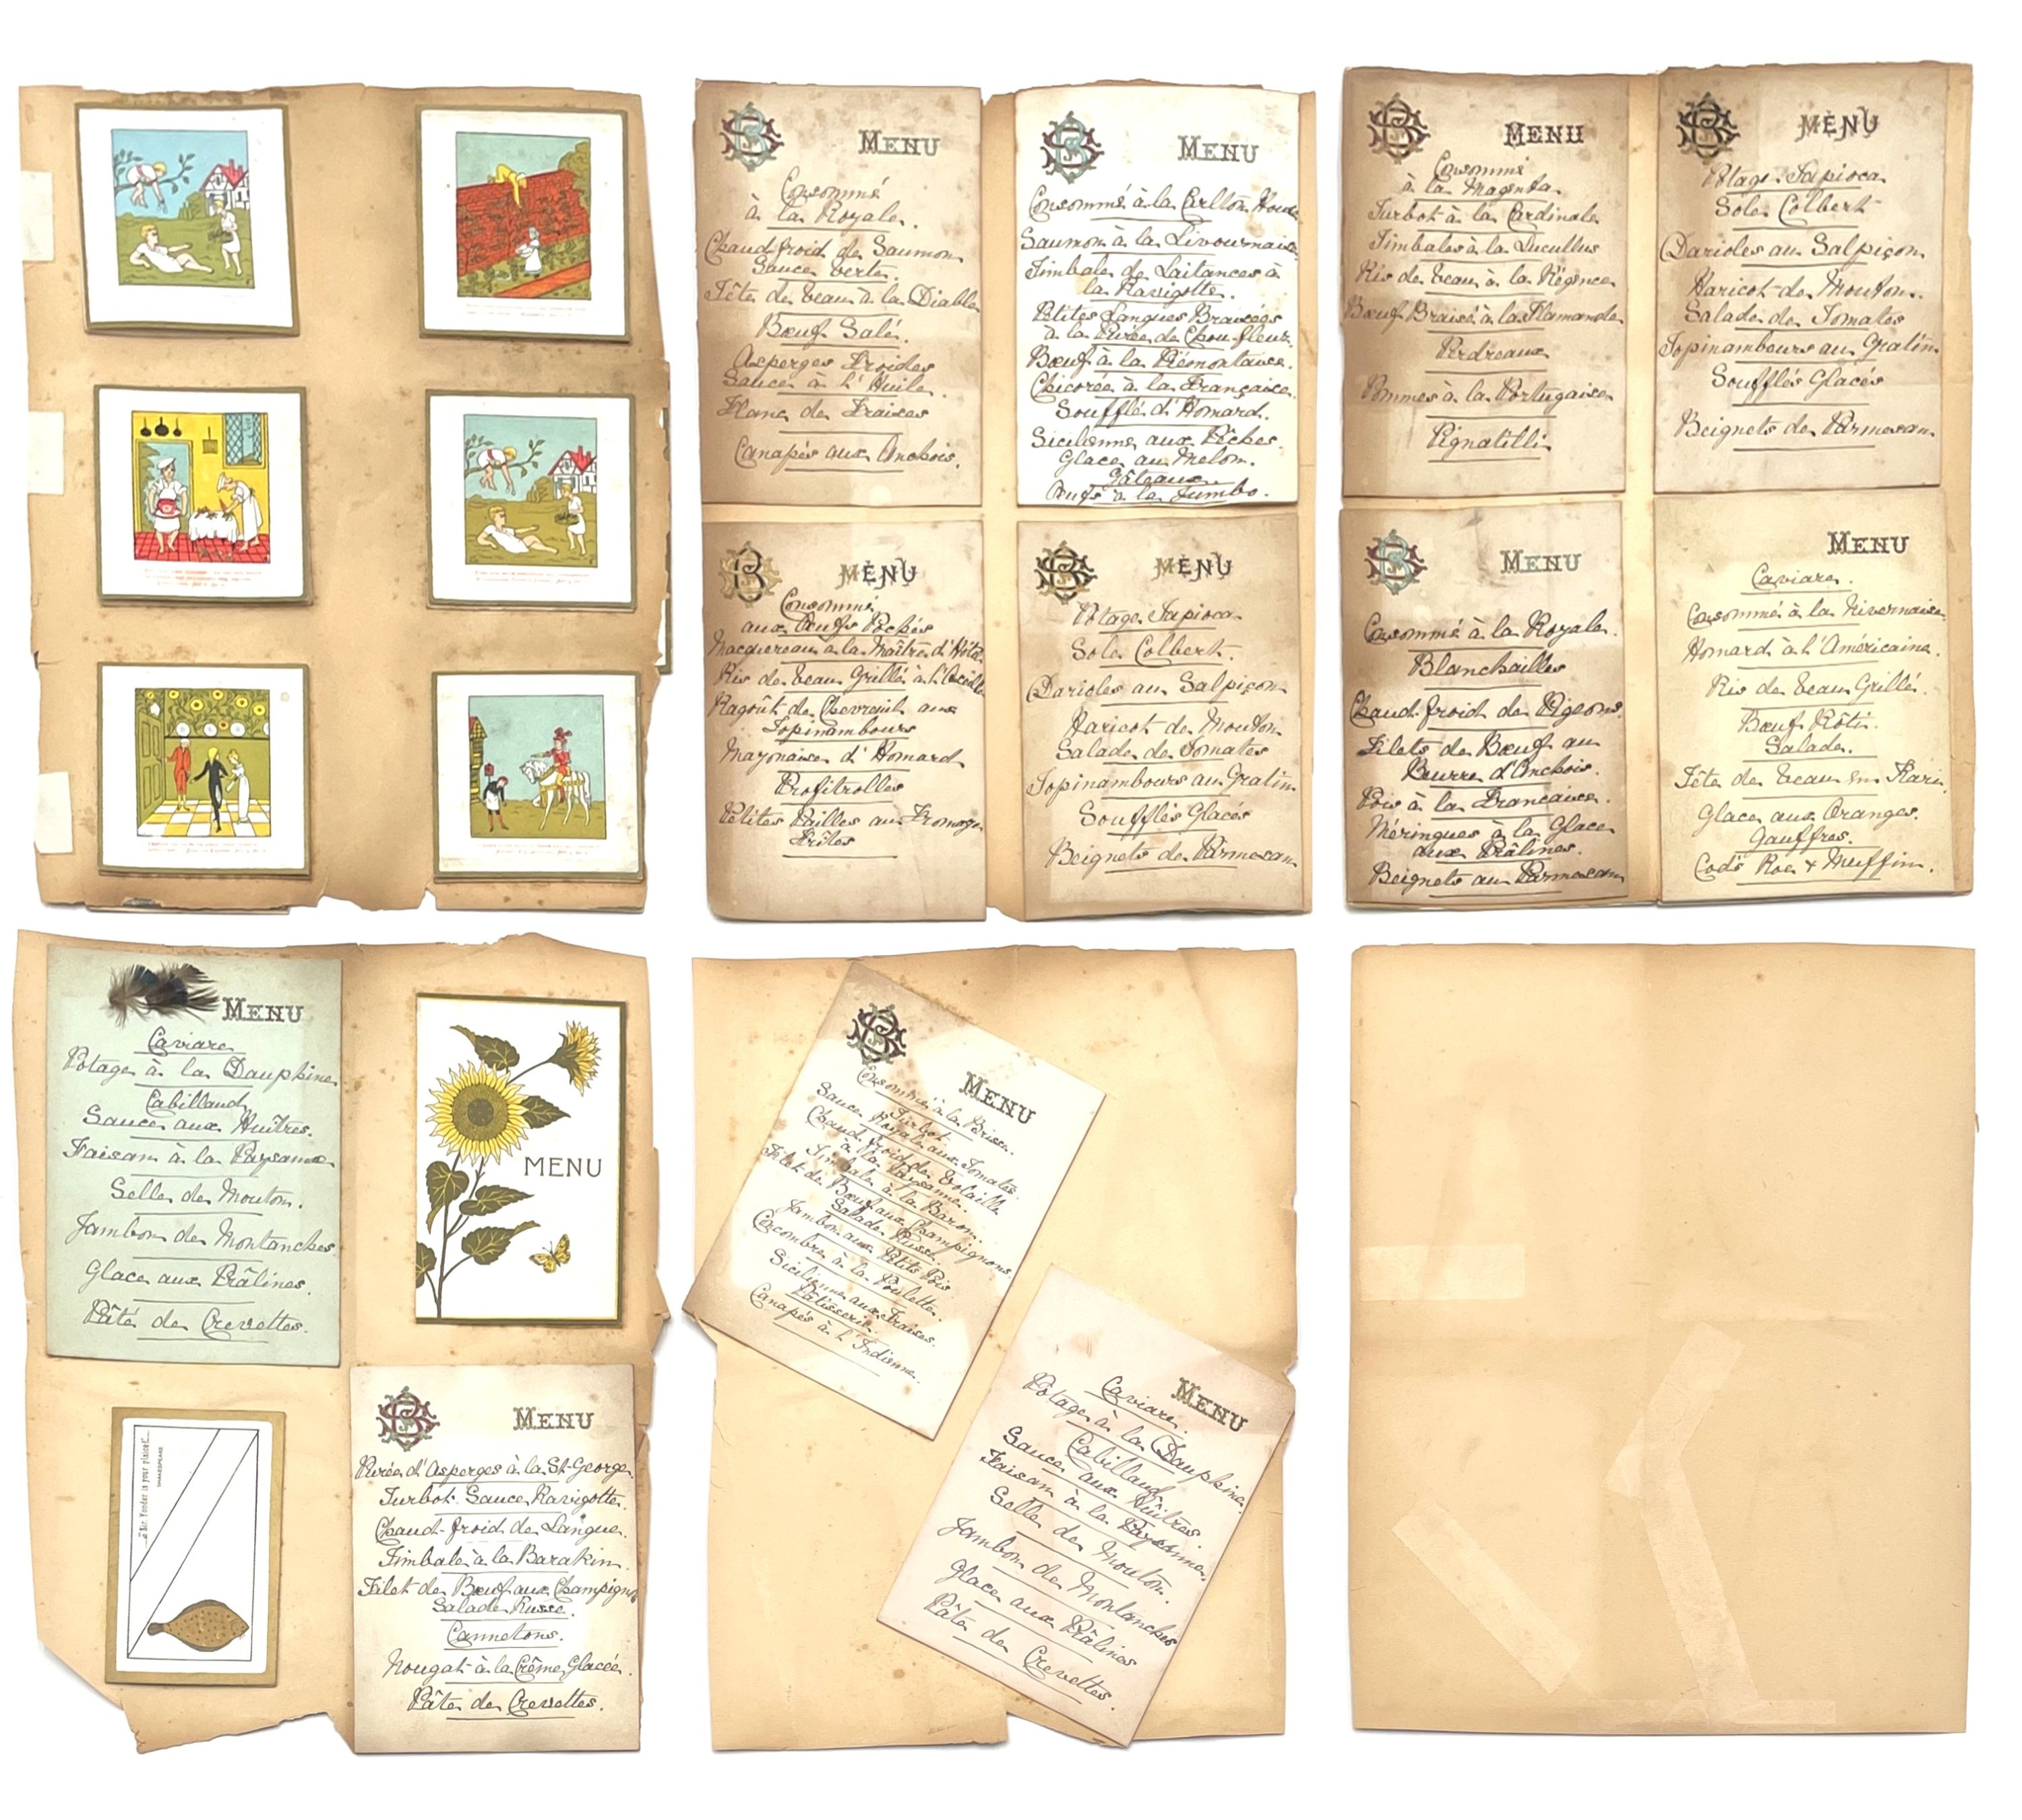 MENU
Consommé
à la Royale.
Chaud-froid de Saumon
Sauce verte.
Tête de Veau à la Diable
Bœuf Salé.
Asperges Froides
Sauce à l'Huile.
Flanc de Fraises
Canapés aux Anchois.
MENU
Consommé à la Carlton House
Saumon à la Livournaise
Timbale de Laitances à
la Ravigotte.
Petites Langues Braisées
à la Purée de Chou-fleur.
Bœuf à la Piémontaise.
Chicorée à la Française.
Soufflé d'Homard.
Sicilienne aux Pêches.
Glace au Melon.
Gâteaux.
Œufs à la Jumbo.
MENU
Consommé
aux Œufs Pochés
Macquereau à la Maître d'Hôtel
Ris de Veau Grillé à l'Oseille
Ragoût de Chevreuil aux
Topinambours
Mayonaise d'Homard
Profitrolles
Petites Pailles au Fromage
Frites
MENU
Potage Tapioca
Sole Colbert.
Darioles au Salpiçon
Haricot de Mouton
Salade de Tomates
Topinambours au Gratin
Soufflés Glacés
Beignets de Parmesan
MENU
Consommé
à la Magenta.
Turbot à la Cardinale
Timbales à la Lucullus
Ris de Veau à la Régence
Bœuf Braisé à la Flamande
Perdreaux
Pommes à la Portugaise
Pignatelli
MENU
Potage Tapioca
Sole Colbert
Darioles au Salpiçon
Haricot de Mouton.
Salade de Tomates
Topinambours au Gratin
Soufflés Glacés
Beignets de Parmesan
MENU
Consommé à la Royale.
Blanchailles
Chaud-froid de Pigeons.
Filets de Bœuf au
Beurre d'Anchois.
Pois à la Française.
Méringues à la Glace
aux Prâlines.
Beignets au Parmesan
MENU
Caviare.
Consommé à la Nivernaise
Homard à l'Américaine.
Ris de Veau Grillé.
Bœuf Rôti.
Salade.
Tête de Veau en Kari.
Glace aux Oranges.
Gauffres.
Cod's Roe & Muffin.
MENU
Caviare
Potage à la Dauphine
Cabillaud
Sauce aux Huîtres.
Faisan à la Paysanne
Selle de Mouton.
Jambon de Montanches
Glace aux Prâlines.
Pâté de Crevettes.
MENU
...Sir, Yonder is your plaice!...
SHAKESPEARE
MENU
Purée d'Asperges à la St-George.
Turbot Sauce Ravigotte.
Chaud-froid de Langue.
Timbale à la Barakin
Filet de Bœuf aux Champignons
Salade Russe.
Cannetons.
Nougat à la Crême Glacée.
Pâté de Crevettes.
MENU
Consommé à la Brisse.
Turbot
Sauce Royale aux Tomates.
Chaud-froid de Volaille
à la Paysanne.
Timbale à la Baron.
Filet de Bœuf aux Champignons.
Salade Russe.
Jambon aux Petits Pois
Cocombre à la Poulette.
Sicilienne aux Fraises.
Pâtisserie.
Canapés à l'Indienne.
MENU
Caviare.
Potage à la Dauphine
Cabillaud
Sauce aux Huîtres
Faisan à la Paysanne.
Selle de Mouton.
Jambon de Montanches
Glace aux Prâlines
Pâté de Crevettes.